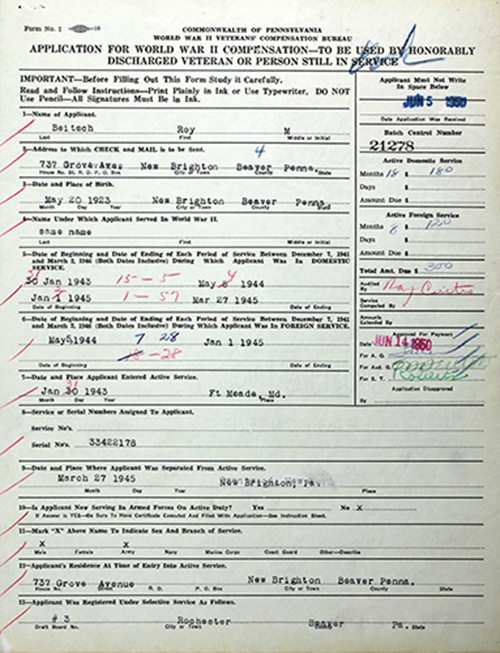 Form No. 1
COMMONWEALTH OF PENNSYLVANIA
WORLD WAR II VETERANS' COMPENSATION BUREAU
APPLICATION FOR WORLD WAR II COMPENSATION—TO BE USED BY HONORABLY
DISCHARGED VETERAN OR PERSON STILL IN SERVICE
IMPORTANT—Before Filling Out This Form Study it Carefully.
Read and Follow Instructions—Print Plainly in Ink or Use Typewriter. DO NOT
Use Pencil—All Signatures Must Be in Ink.
Applicant Must Not Write
In Space Below
JUN 5 1950
Date Application Was Received
Batch Control Number
21278
Active Domestic Service
Months 18 $ 180
Days $
Amount Due $
Active Foreign Service
Months 8 $ 120
Days $
Amount Due $
Total Amt. Due $ 300
Audited By Ray
Service Computed By
Amounts Extended By
Approved For Payment
JUN 14 1950
For A. G.
For Aud. G.
For S. T. Roberts
Application Disapproved
By
1—Name of Applicant.
Beitsch Roy M
Last First Middle or Initial
2—Address to Which CHECK and MAIL is to be Sent. 4
737 Grove Avee New Brighton Beaver Penna.
House No. St. R. D. P. O. Box City or Town County State
3—Date and Place of Birth.
May 20 1923 New Brighton Beaver Penna.
Month Day Year City or Town County State
4—Name Under Which Applicant Served In World War II.
same name
Last First Middle or Initial
5—Date of Beginning and Date of Ending of Each Period of Service Between December 7, 1941
and March 2, 1946 (Both Dates Inclusive) During Which Applicant Was In DOMESTIC
SERVICE.
31
30 Jan 1943 15-5 May 5 4 1944
Jan 1 2 1945 1-57 Mar 27 1945
Date of Beginning Date of Ending
6—Date of Beginning and Date of Ending of Each Period of Service Between December 7, 1941
and March 2, 1946 (Both Dates Inclusive) During Which Applicant Was In FOREIGN SERVICE.
May 5 1944 7 28 Jan 1 1945
18-28
Date of Beginning Date of Ending
7—Date and Place Applicant Entered Active Service.
31
Jan 30 1943 Ft Meade, Md.
Month Day Year Place
8—Service or Serial Numbers Assigned To Applicant.
Service No's.
Serial No's. 33422178
9—Date and Place Where Applicant Was Separated From Active Service.
March 27 1945 New Brighton, Pa.
Month Day Year Place
10—Is Applicant Now Serving In Armed Forces On Active Duty? Yes No X
If Answer is YES—Be Sure To Have Certificate Executed And Filed With Application—See Instruction Sheet.
11—Mark "X" Above Name To Indicate Sex and Branch of Service.
X X
Male Female Army Navy Marine Corps Coast Guard Other—Describe
12—Applicant's Residence At Time of Entry Into Active Service.
737 Grove Avenue New Brighton Beaver Penna.
House No. Street R. D. P. O. Box City or Town County State
13—Applicant Was Registered Under Selective Service As Follows.
# 3 Rochester Beaver Pa.
Draft Board No. City or Town County State